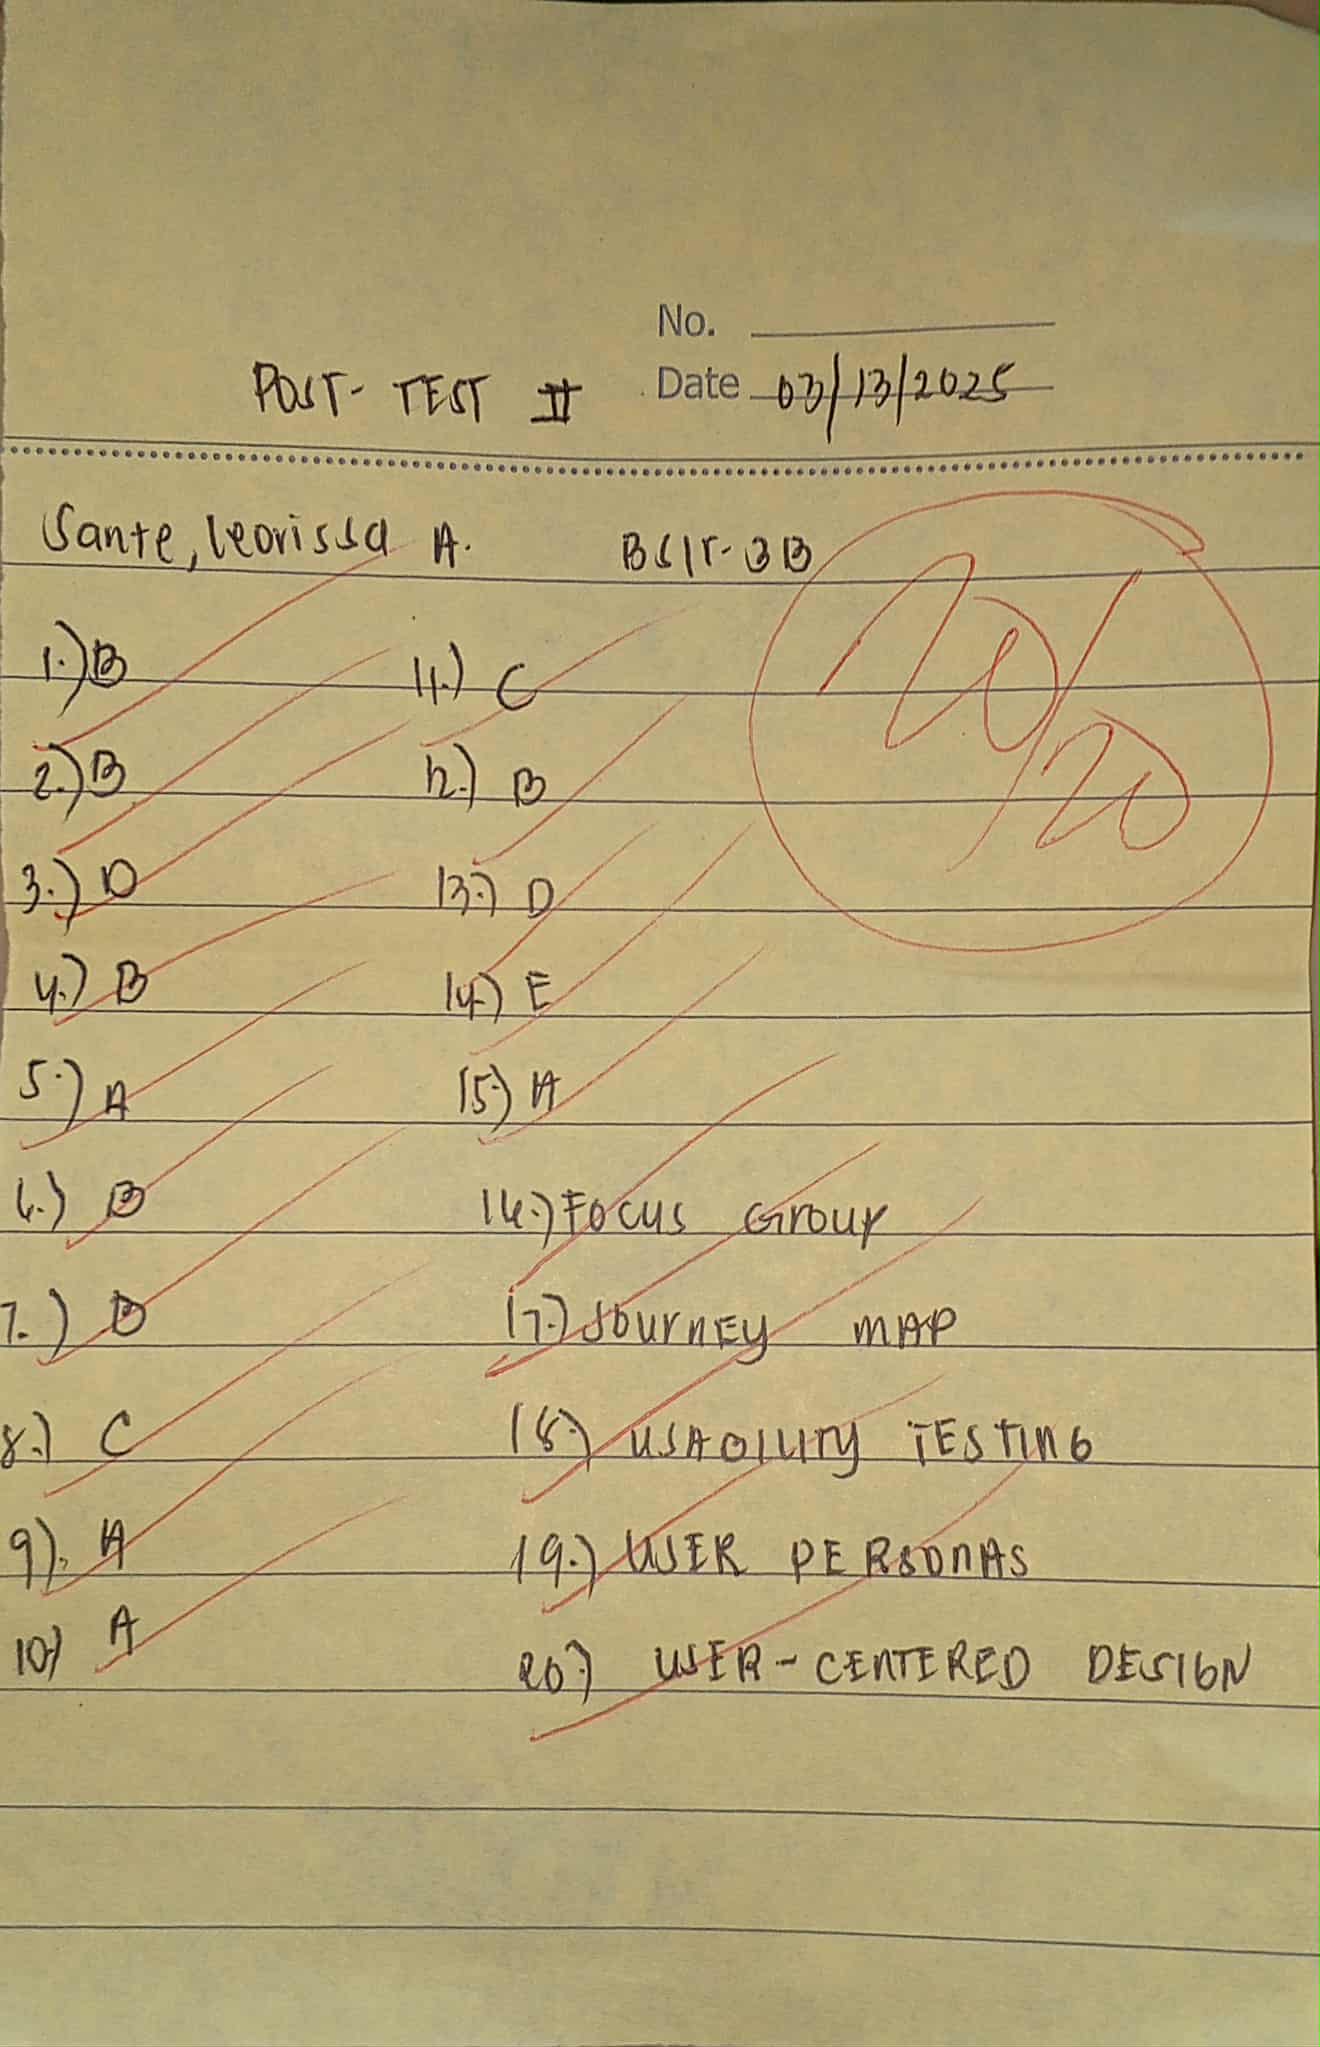 No.
POST-TEST II Date 03/13/2025
Sante, leorissa A. BSIT-3B
20/20
1.) B
2.) B
3.) D
4.) B
5.) A
6.) B
7.) B
8.) C
9). A
10) A
11.) C
12.) B
13.) D
14.) E
15.) A
16.) FOCUS Group
17.) JourNEy MAP
18.) USABILITY TESTING
19.) USER PERSONAS
20.) USER-CENTERED DESIGN